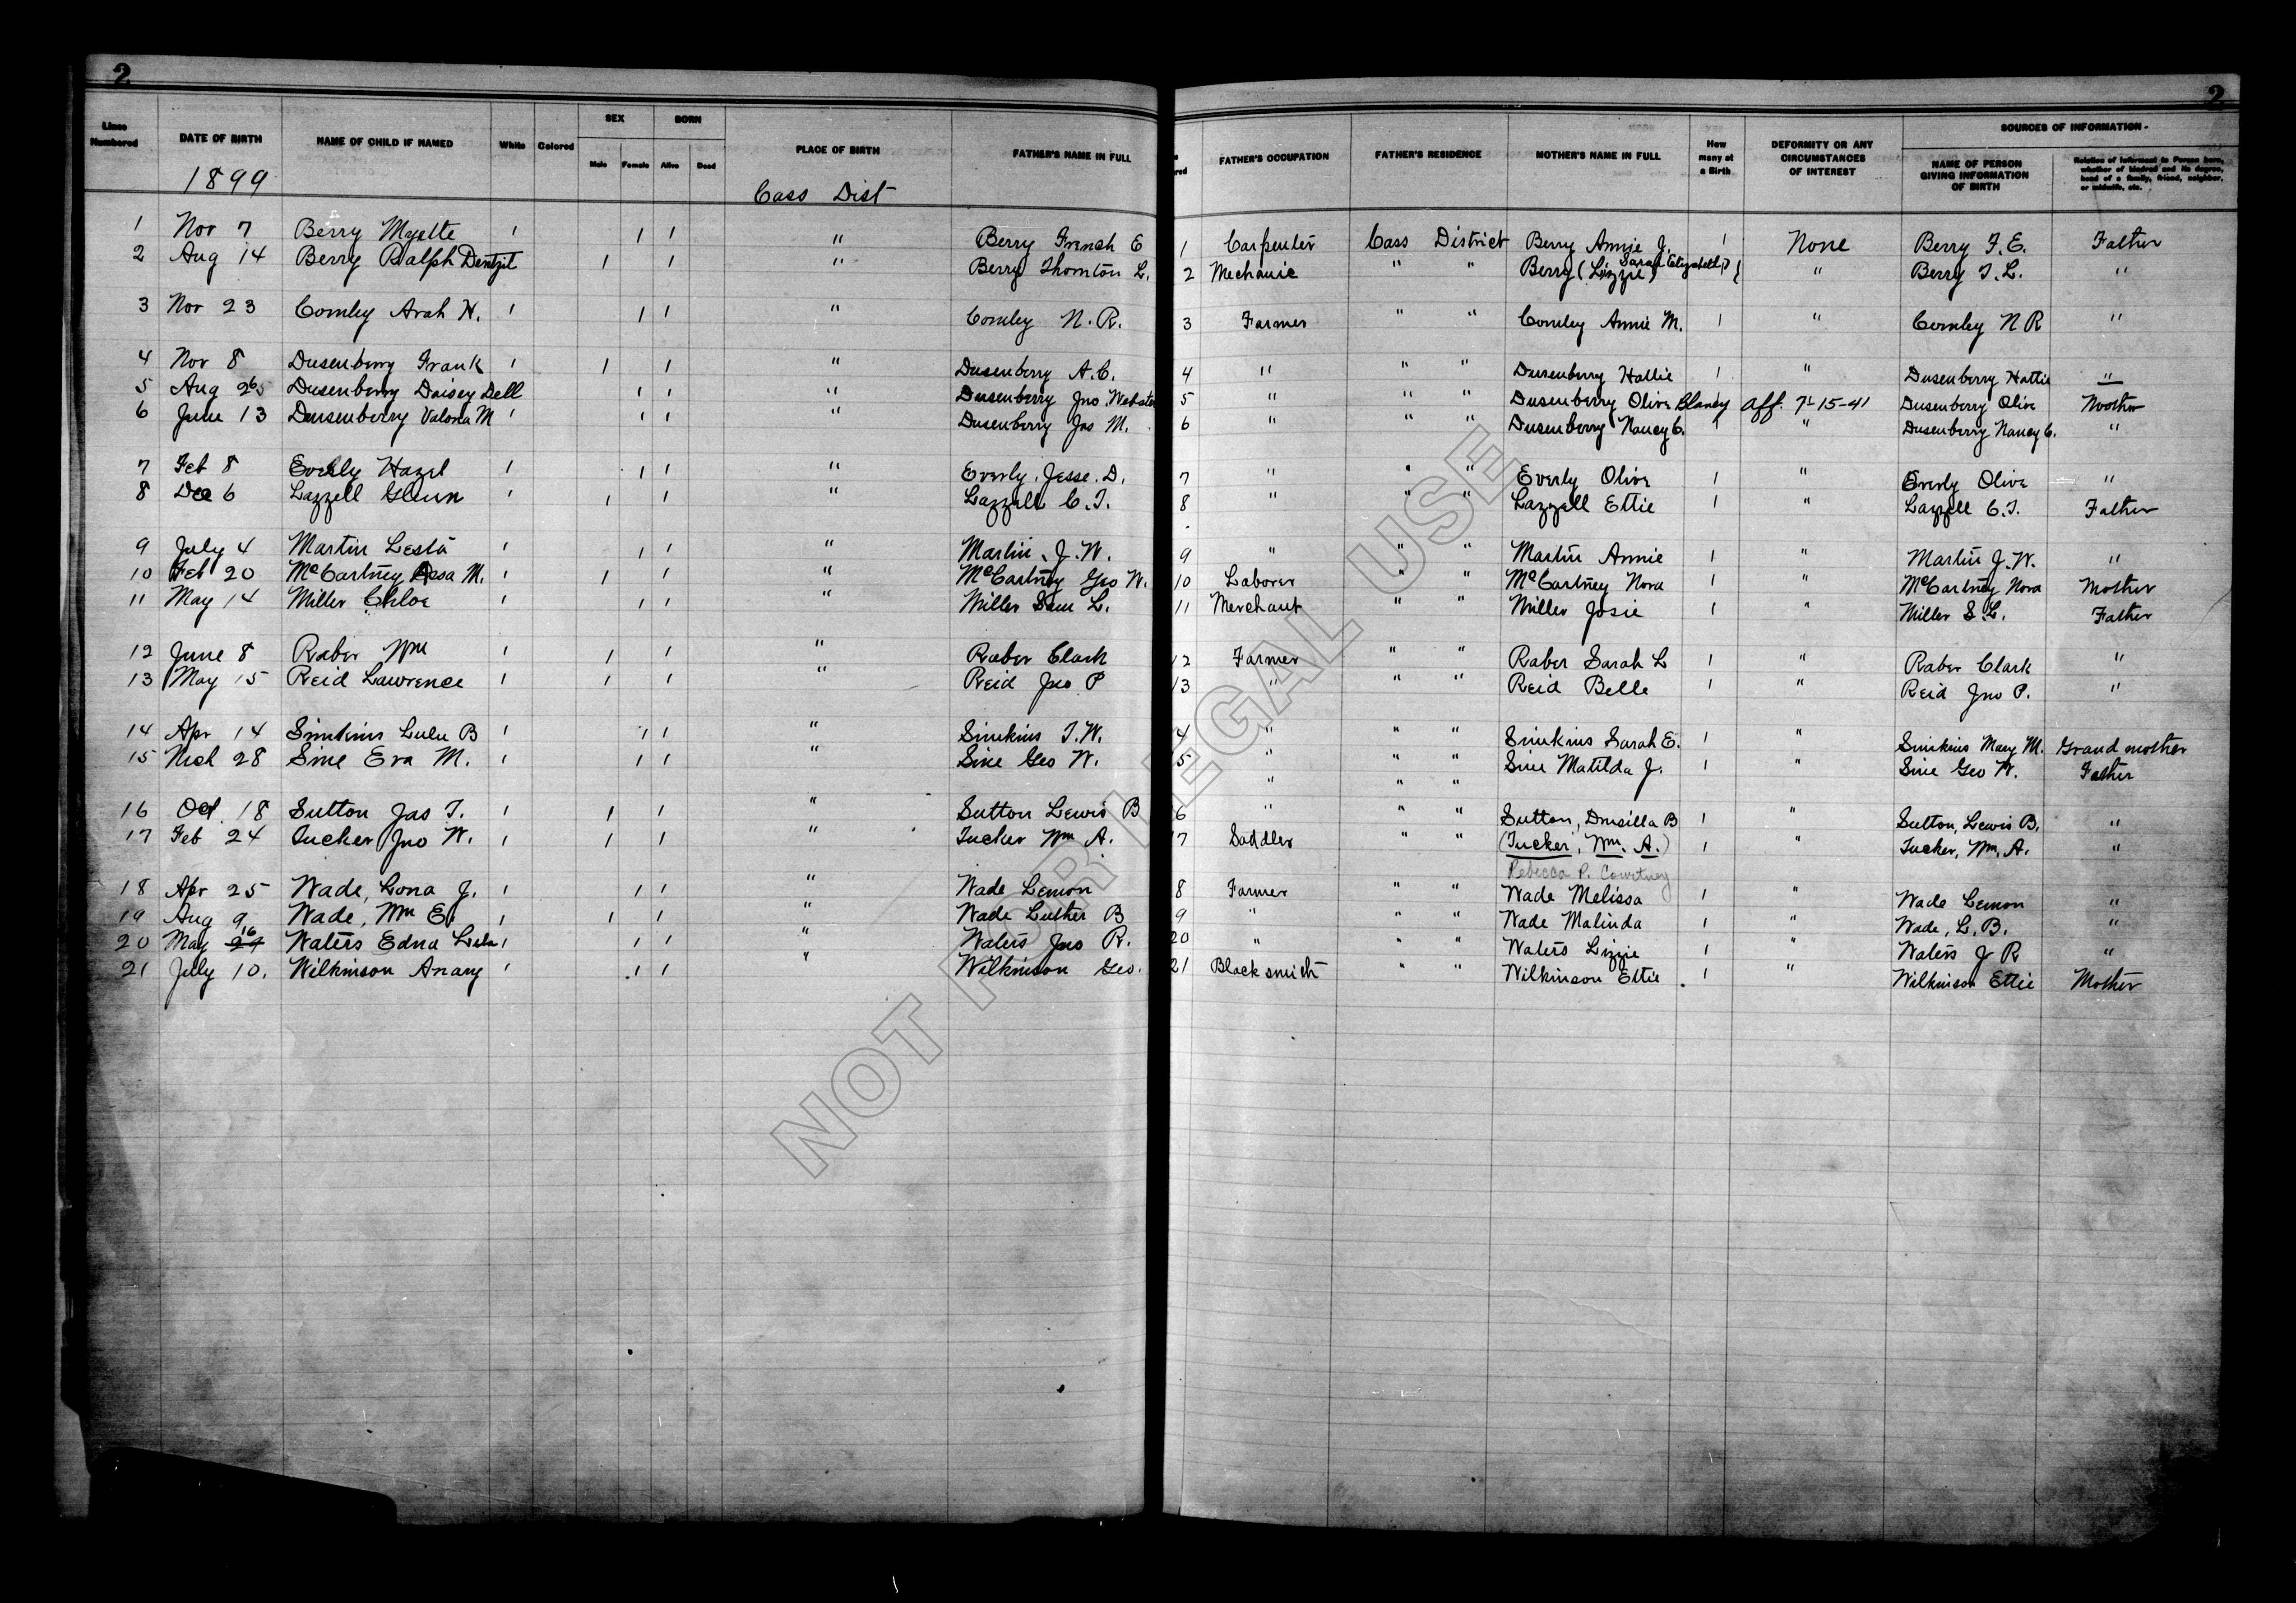 2 2
Lines Numbered DATE OF BIRTH NAME OF CHILD IF NAMED White Colored SEX Male Female BORN Alive Dead PLACE OF BIRTH FATHER'S NAME IN FULL FATHER'S OCCUPATION FATHER'S RESIDENCE MOTHER'S NAME IN FULL How many at a Birth DEFORMITY OR ANY CIRCUMSTANCES OF INTEREST SOURCES OF INFORMATION- NAME OF PERSON GIVING INFORMATION OF BIRTH Relation of Informant to Person born, whether of kindred and its degree, head of a family, friend, neighbor, or midwife, etc.
1899 Cass Dist
1 Nov 7 Berry Myrtle 1 1 1 " Berry French E 1 Carpenter Cass District Berry Annie J. 1 None Berry F. E. Father
2 Aug 14 Berry Ralph Dentzil 1 1 " Berry Thornton L. 2 Mechanic " " Berry (Lizzie) Sarah Elizabeth " Berry T. L. "
3 Nov 23 Comley Arah N. 1 1 1 " Comley N. R. 3 Farmer " " Comley Annie M. 1 " Comley N R "
4 Nov 8 Dusenberry Frank 1 1 1 " Dusenberry A. C. 4 " " " Dusenberry Hattie 1 " Dusenberry Hattie "
5 Aug 26 Dusenberry Daisey Dell 1 1 " Dusenberry Jno Webster 5 " " " Dusenberry Olive Blaney Aff. 7-15-41 Dusenberry Olive Mother
6 June 13 Dusenberry Valona M 1 1 1 " Dusenberry Jas M. 6 " " " Dusenberry Nancy C. 1 " Dusenberry Nancy C. "
7 Feb 8 Everly Hazel 1 1 1 " Everly, Jesse. D. 7 " " " Everly Olive 1 " Everly Olive "
8 Dec 6 Lazzell Glenn 1 1 1 " Lazzell C. T. 8 " " " Lazzell Ettie 1 " Lazzell C. T. Father
9 July 4 Martin Lesta 1 1 1 " Martin J. W. 9 " " " Martin Annie 1 " Martin J. W. "
10 Feb 20 McCartney Asa M. 1 1 1 " McCartney Geo W. 10 Laborer " " McCartney Nora 1 " McCartney Nora Mother
11 May 14 Miller Chloe 1 1 1 " Miller Sam L. 11 Merchant " " Miller Josie 1 " Miller S L. Father
12 June 8 Raber Wm 1 1 1 " Raber Clark 12 Farmer " " Raber Sarah L 1 " Raber Clark "
13 May 15 Reid Lawrence 1 1 1 " Reid Jno P 13 " " " Reid Belle 1 " Reid Jno P. "
14 Apr 14 Simkins Lulu B 1 1 1 " Simkins T. W. 4 " " " Simkins Sarah E. 1 " Simkins Mary M. Grand mother
15 Mch 28 Sine Eva M. 1 1 1 " Sine Geo W. 5 " " " Sine Matilda J. 1 " Sine Geo W. Father
" " "
16 Oct. 18 Sutton Jas T. 1 1 1 " Sutton Lewis B 6 " " " Sutton, Drusilla B 1 " Sutton, Lewis B. "
17 Feb 24 Tucker Jno W. 1 1 1 " Tucker Wm A. 7 Saddler " " (Tucker, Wm. A.) 1 " Tucker, Wm. A. "
Rebecca P. Courtney
18 Apr 25 Wade, Lona J. 1 1 1 " Wade Lemon 8 Farmer " " Wade Melissa 1 " Wade Lemon "
19 Aug 9 Wade, Wm E. 1 1 1 " Wade Luther B 9 " " " Wade Malinda 1 " Wade, L. B. "
20 May 16 Waters Edna Lela 1 1 1 " Waters Jno R. 20 " " " Waters Lizzie 1 " Waters J R "
21 July 10. Wilkinson Anary 1 1 1 " Wilkinson Geo. 21 Blacksmith " " Wilkinson Ettie 1 " Wilkinson Ettie Mother
NOT FOR LEGAL USE